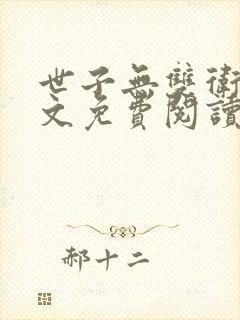 世子無雙衛
文免費閱讀
郝十二